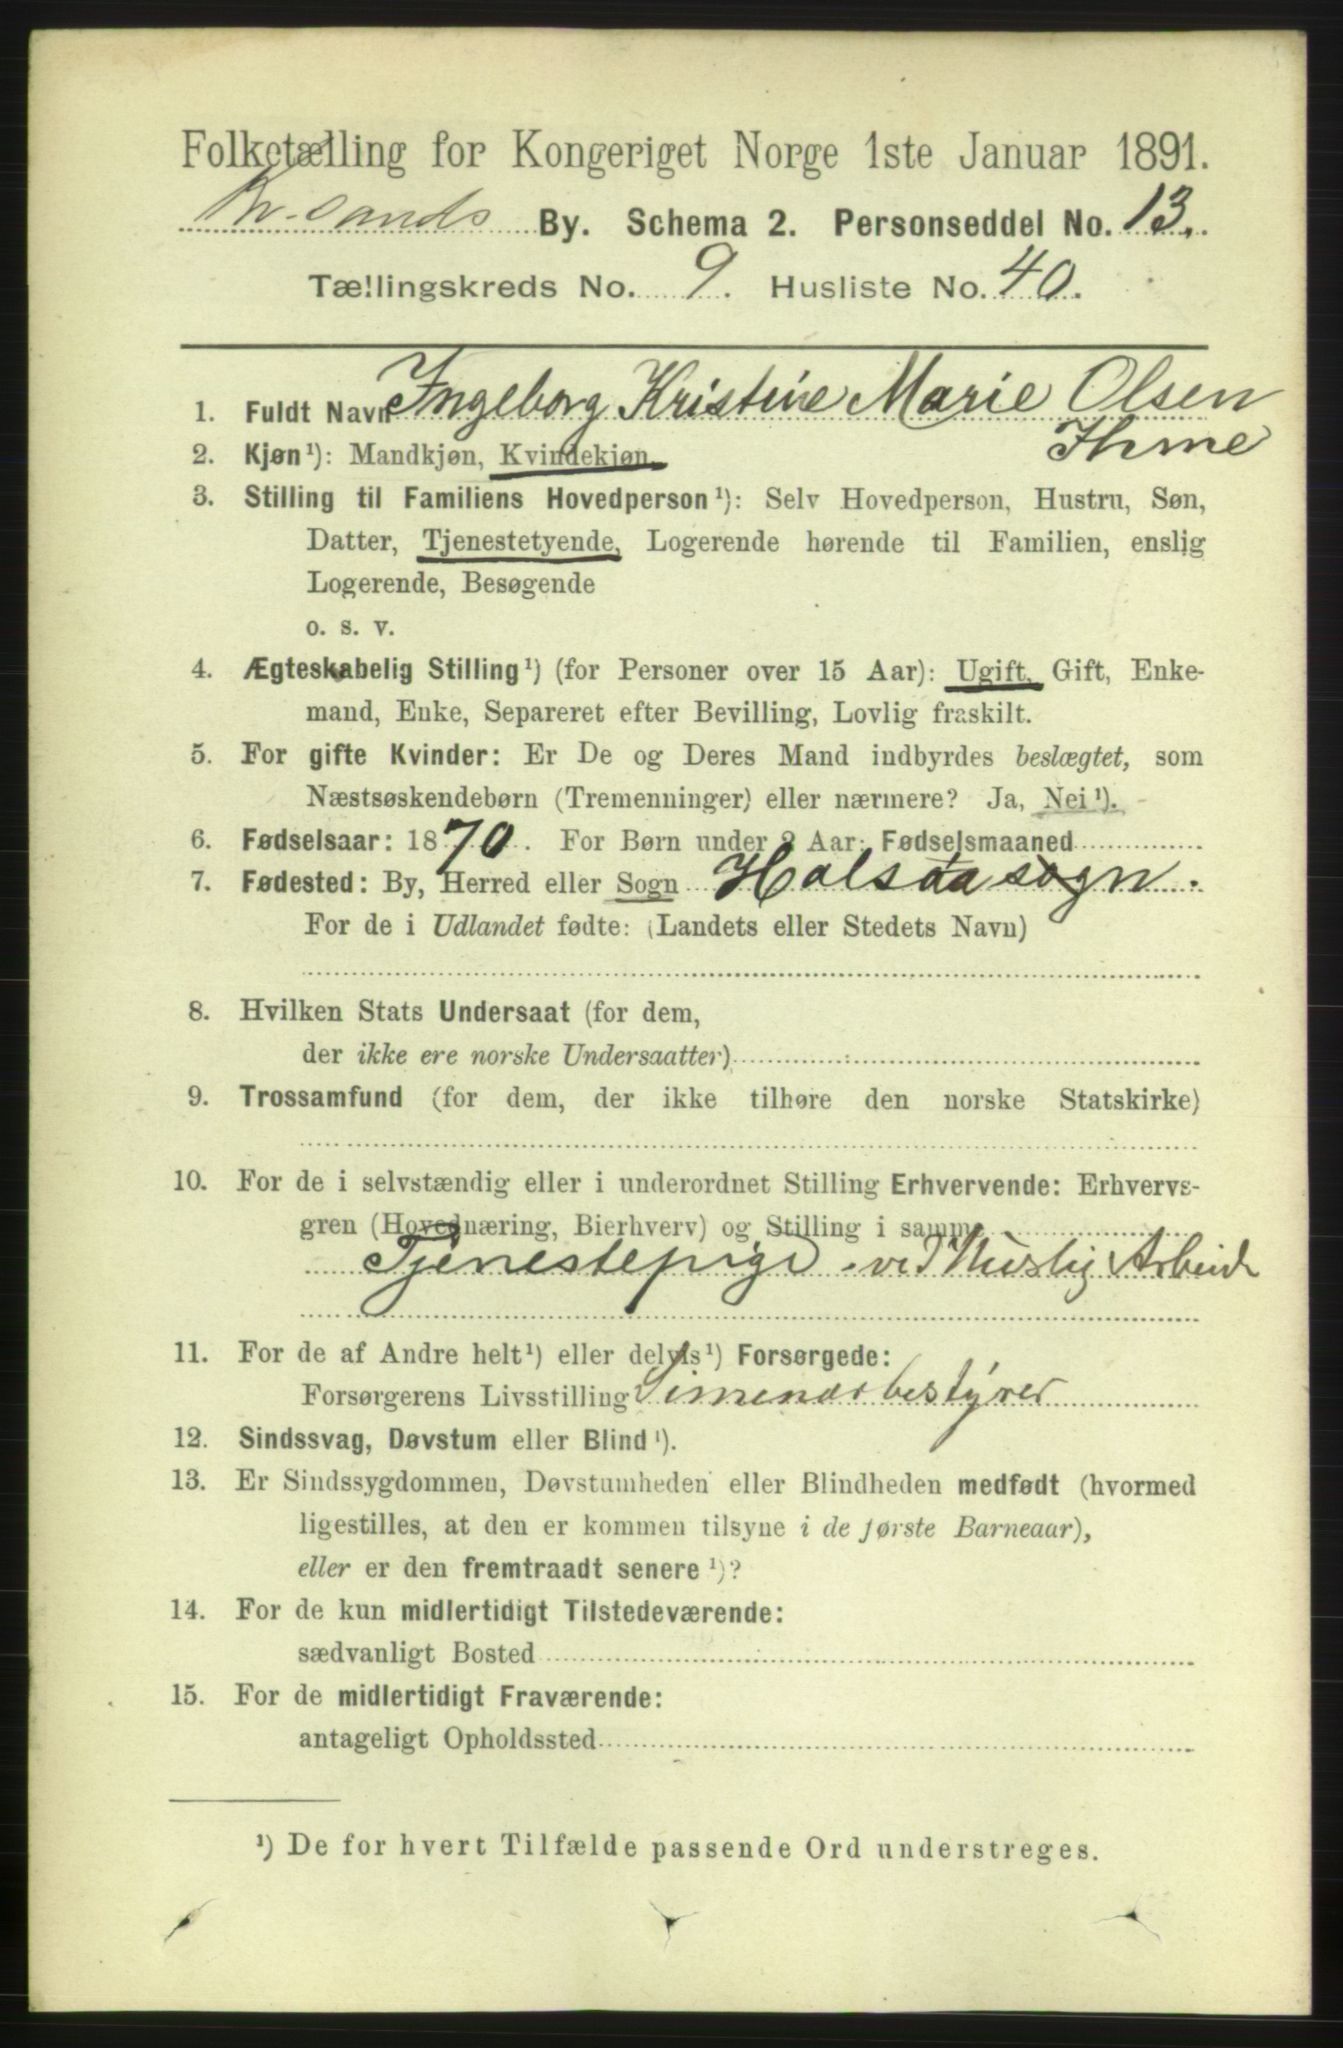 Folketælling for Kongeriget Norge 1ste Januar 1891.
Kr-sands By. Schema 2. Personseddel No. 13.
Tællingskreds No. 9. Husliste No. 40.
1. Fuldt Navn Ingeborg Kristine Marie Olsen
Ihme
2. Kjøn¹): Mandkjøn, Kvindekjøn.
3. Stilling til Familiens Hovedperson¹): Selv Hovedperson, Hustru, Søn,
Datter, Tjenestetyende, Logerende hørende til Familien, enslig
Logerende, Besøgende
o. s. v.
4. Ægteskabelig Stilling¹) (for Personer over 15 Aar): Ugift, Gift, Enke-
mand, Enke, Separeret efter Bevilling, Lovlig fraskilt.
5. For gifte Kvinder: Er De og Deres Mand indbyrdes beslægtet, som
Næstsøskendebørn (Tremenninger) eller nærmere? Ja, Nei¹).
6. Fødselsaar: 1870. For Børn under 2 Aar: Fødselsmaaned
7. Fødested: By, Herred eller Sogn Halsaa sogn.
For de i Udlandet fødte: (Landets eller Stedets Navn)
8. Hvilken Stats Undersaat (for dem,
der ikke ere norske Undersaatter)
9. Trossamfund (for dem, der ikke tilhøre den norske Statskirke)
10. For de i selvstændig eller i underordnet Stilling Erhvervende: Erhvervs-
gren (Hovednæring, Bierhverv) og Stilling i samme
Tjenestepige ved Huslig Arbeide
11. For de af Andre helt¹) eller delvis¹) Forsørgede:
Forsørgerens Livsstilling
12. Sindssvag, Døvstum eller Blind¹).
13. Er Sindssygdommen, Døvstumheden eller Blindheden medfødt (hvormed
ligestilles, at den er kommen tilsyne i de første Barneaar),
eller er den fremtraadt senere¹)?
14. For de kun midlertidigt Tilstedeværende:
sædvanligt Bosted
15. For de midlertidigt Fraværende:
antageligt Opholdssted
¹) De for hvert Tilfælde passende Ord understreges.